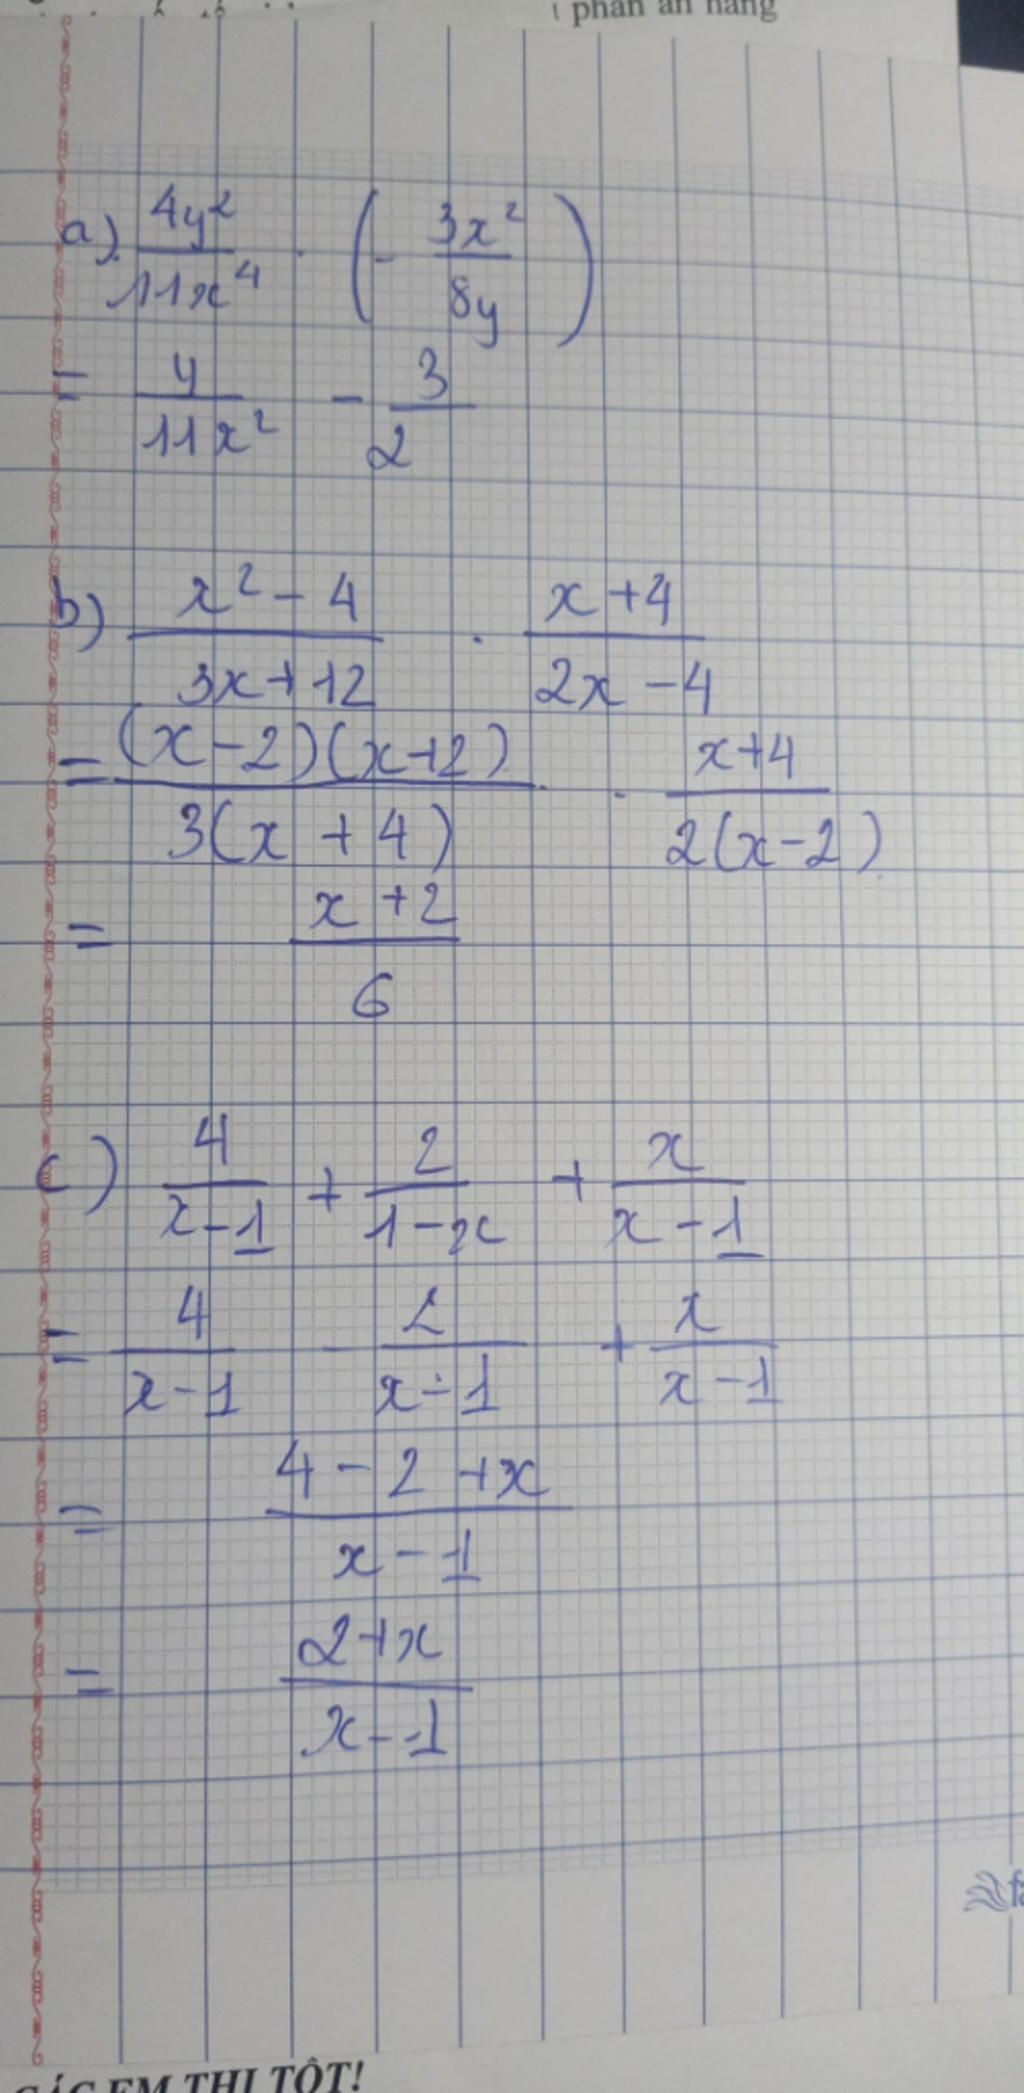 phần ăn hàng
a) \frac{4y^2}{11x^4} \cdot \left( - \frac{3x^2}{8y} \right)
= \frac{y}{11x^2} - \frac{3}{2}
b) \frac{x^2 - 4}{3x + 12} \cdot \frac{x + 4}{2x - 4}
= \frac{(x - 2)(x + 2)}{3(x + 4)} \cdot \frac{x + 4}{2(x - 2)}
= \frac{x + 2}{6}
c) \frac{4}{x - 1} + \frac{2}{1 - x} + \frac{x}{x - 1}
= \frac{4}{x - 1} - \frac{2}{x - 1} + \frac{x}{x - 1}
= \frac{4 - 2 + x}{x - 1}
= \frac{2 + x}{x - 1}
CÁC EM THI TỐT!